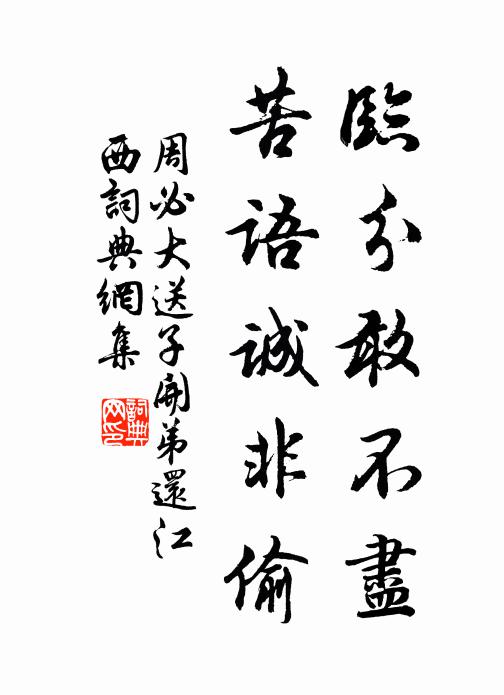 臨分敢不盡
苦語誠非偷
周必大送子開弟還江
西詞典網集
詞典
网印